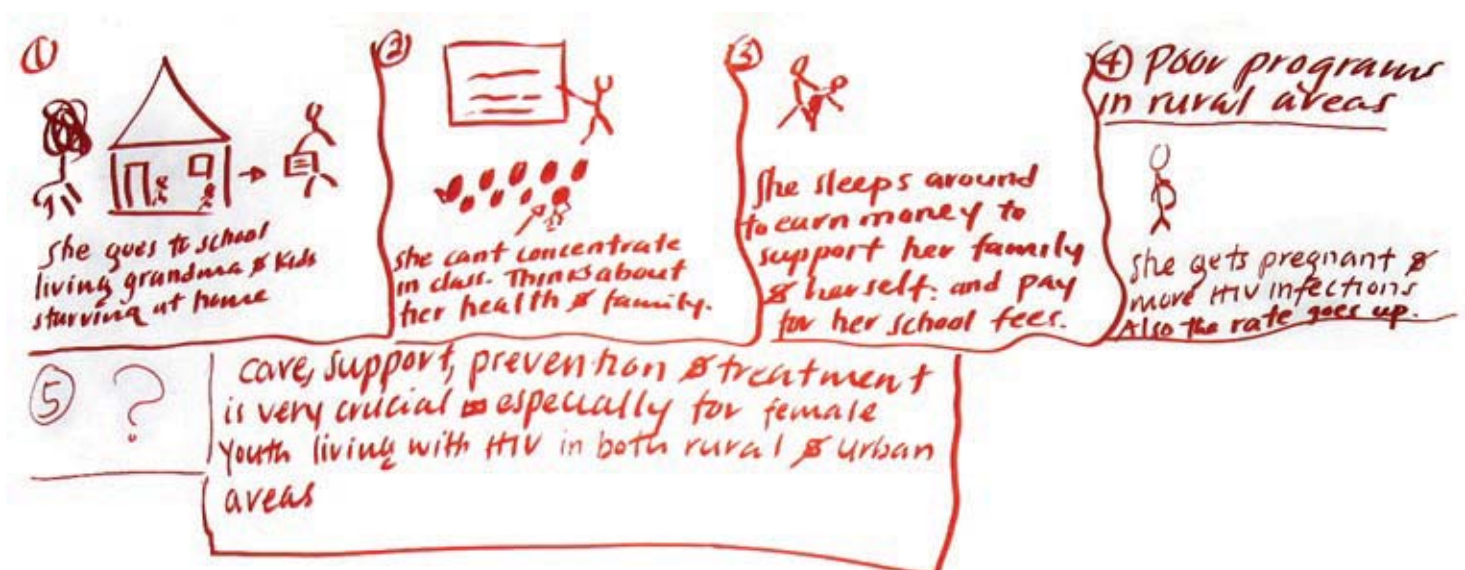 ①
she goes to school
living grandma & kids
starving at home
②
she cant concentrate
in class. Thinks about
her health & family.
③
she sleeps around
to earn money to
support her family
& herself. and pay
for her school fees.
④ Poor programs
in rural areas
she gets pregnant &
more HIV infections
Also the rate goes up.
⑤ ?
care, support, prevention & treatment
is very crucial especially for female
youth living with HIV in both rural & urban
areas